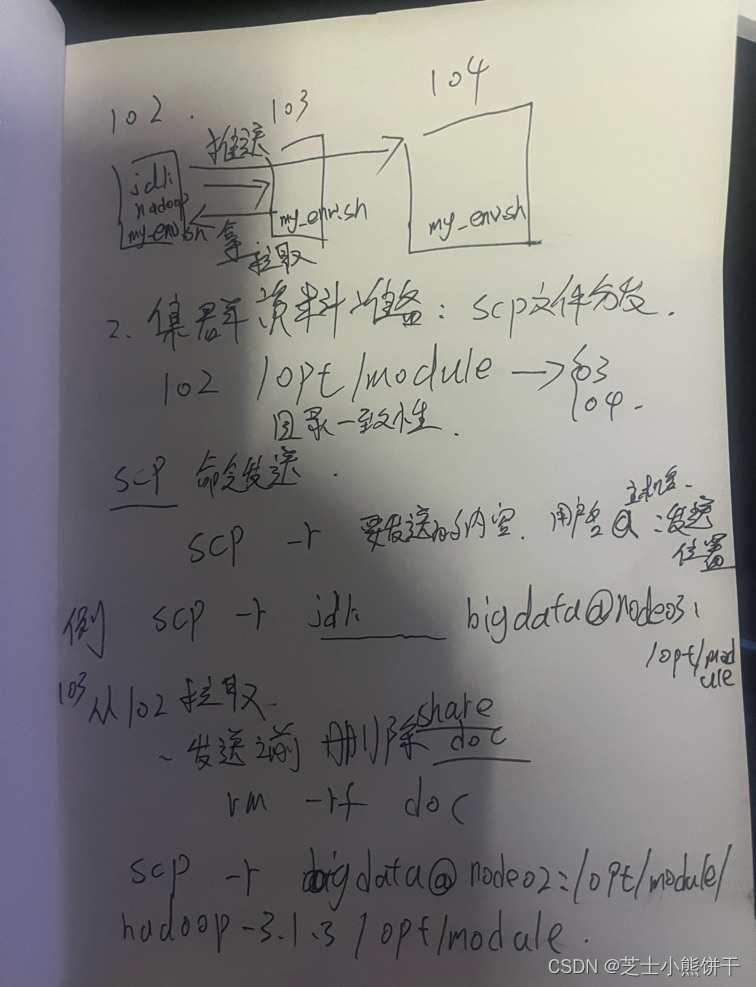 102.
103
104
推送
jdk
hadoop
my_env.sh
my_env.sh
my_env.sh
拿
拉取
2. 集群资料准备: scp文件分发.
102 /opt/module → 103
104.
目录一致性.
scp 命令发送.
主机名
scp -r 要发送的内容. 用户名@ :发送
位置
例 scp -r jdk bigdata@node03:
/opt/mod
ule
103从102拉取.
、发送之前 删除share
doc
rm -rf doc
scp -r bigdata@node02:/opt/module/
hadoop-3.1.3 /opt/module.
CSDN @芝士小熊饼干